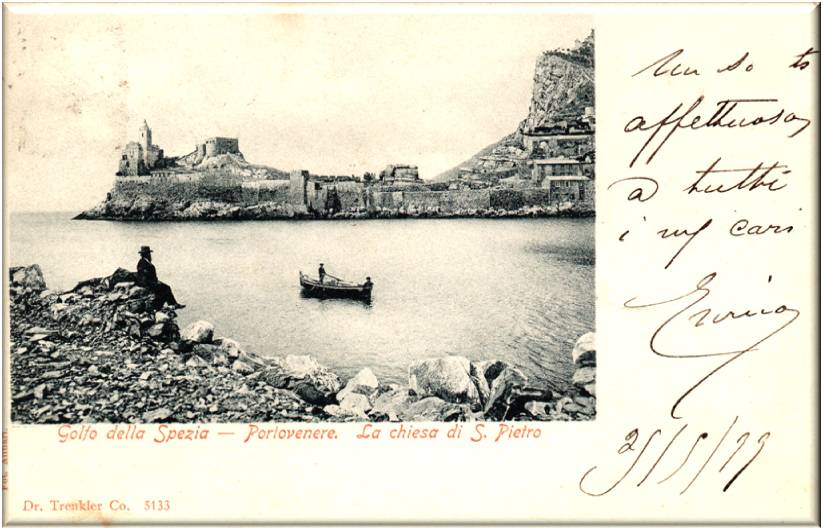 Golfo della Spezia — Portovenere. La chiesa di S. Pietro
Dr. Trenkler Co. 5133
Un so to
affettuoso
a tutti
i
cari
Enrico